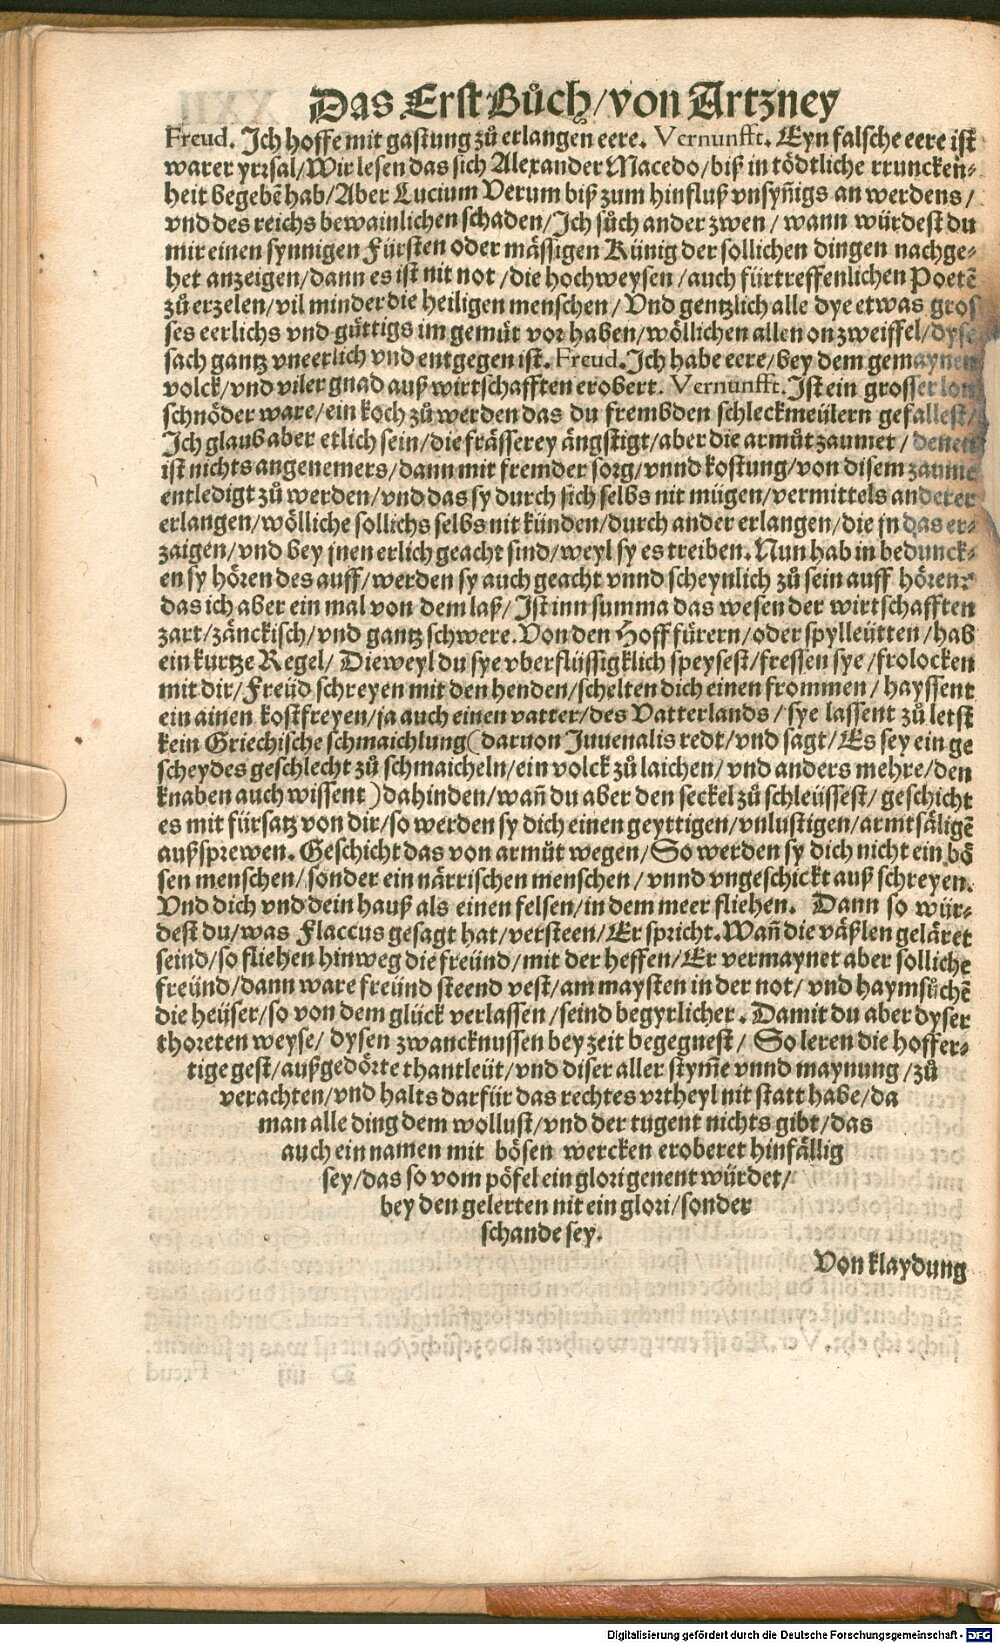 Das Erst Bůch/von Artzney
Freud. Ich hoffe mit gastung zů erlangen eere. Vernunfft. Eyn falsche eere ist
warer yrrsal/Wir lesen das sich Alexander Macedo/biß in tödtliche rruncken⸗
heit begebẽ hab/Aber Lucium Verum biß zum hinfluß vnsyñigs an werdens/
vnd des reichs bewainlichen schaden/Ich sůch ander zwen/wann würdest du
mir einen synnigen Fürsten oder mässigen Künig der sollichen dingen nachge⸗
het anzeigen/dann es ist nit not/die hochweysen/auch fürtreffenlichen Poetẽ
zů erzelen/vil minder die heiligen menschen/Vnd gentzlich alle dye etwas gros
ses eerlichs vnd gůttigs im gemüt vor haben/wöllichen allen on zweiffel/dyse
sach gantz vneerlich vnd entgegen ist. Freud. Ich habe eere/bey dem gemaynen
volck/vnd viler gnad auß wirtschafften erobert. Vernunfft. Ist ein grosser lon
schnöder ware/ein koch zů werden das du frembden schleckmeülern gefallest/
Ich glaub aber etlich sein/die frässerey ängstigt/aber die armůt zaumet/denen
ist nichts angenemers/dann mit fremder sorg/vnnd kostung/von disem zaume
entledigt zů werden/vnd das sy durch sich selbs nit mügen/vermittels anderer
erlangen/wölliche sollichs selbs nit künden/durch ander erlangen/die jn das er⸗
zaigen/vnd bey jnen erlich geacht sind/weyl sy es treiben. Nun hab in bedunck⸗
en sy hören des auff/werden sy auch geacht vnnd scheynlich zů sein auff hören:
das ich aber ein mal von dem laß/Ist inn summa das wesen der wirtschafften
zart/zänckisch/vnd gantz schwere. Von den Hoff fürern/oder spylleütten/hab
ein kurtze Regel/Dieweyl du sye vberflüssigklich speysest/fressen sye/frolocken
mit dir/Freüd schreyen mit den henden/schelten dich einen frommen/hayssent
ein ainen kostfreyen/ja auch einen vatter/des Vatterlands/sye lassent zů letst
kein Griechische schmaichlung (daruon Juuenalis redt/vnd sagt/Es sey ein ge
scheydes geschlecht zů schmaicheln/ein volck zů laichen/vnd anders mehre/den
knaben auch wissent) dahinden/wañ du aber den seckel zů schleüssest/geschicht
es mit fürsatz von dir/so werden sy dich einen geyttigen/vnlustigen/armtsäligẽ
außsprewen. Geschicht das von armüt wegen/So werden sy dich nicht ein bö
sen menschen/sonder ein närrischen menschen/vnnd vngeschickt auß schreyen.
Vnd dich vnd dein hauß als einen felsen/in dem meer fliehen. Dann so wür⸗
dest du/was Flaccus gesagt hat/versteen/Er spricht. Wañ die väßlen geläret
seind/so fliehen hinweg die freünd/mit der heffen/Er vermaynet aber solliche
freünd/dann ware freünd steend vest/am maysten in der not/vnd haymsůchẽ
die heüser/so von dem glück verlassen/seind begyrlicher. Damit du aber dyser
thoreten weyse/dysen zwancknussen bey zeit begegnest/So leren die hoffer⸗
tige gest/außgedörte thantleüt/vnd diser aller stym̃e vnnd maynung/zů
verachten/vnd halts darfür das rechtes vrtheyl nit statt habe/da
man alle ding dem wollust/vnd der tugent nichts gibt/das
auch ein namen mit bösen wercken eroberet hinfällig
sey/das so vom pöfel ein glori genent würdet/
bey den gelerten nit ein glori/sonder
schande sey.
Von klaydung
Digitalisierung gefördert durch die Deutsche Forschungsgemeinschaft - DFG